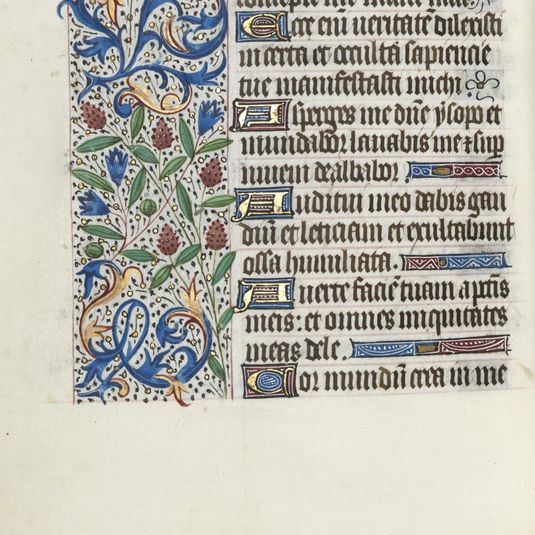 Ecce eni veritatē dilexisti
incerta et occulta sapiencie
tue manifestasti michi
Asperges me dnē ysopo et
mundabor lavabis me ⁊ sup
nivem dealbabor
Auditui meo dabis gau
diū et leticiam et exultabunt
ossa humiliata.
Averte faciē tuam a pctīs
meis: et omnes iniquitates
meas dele
Cor mundū crea in me